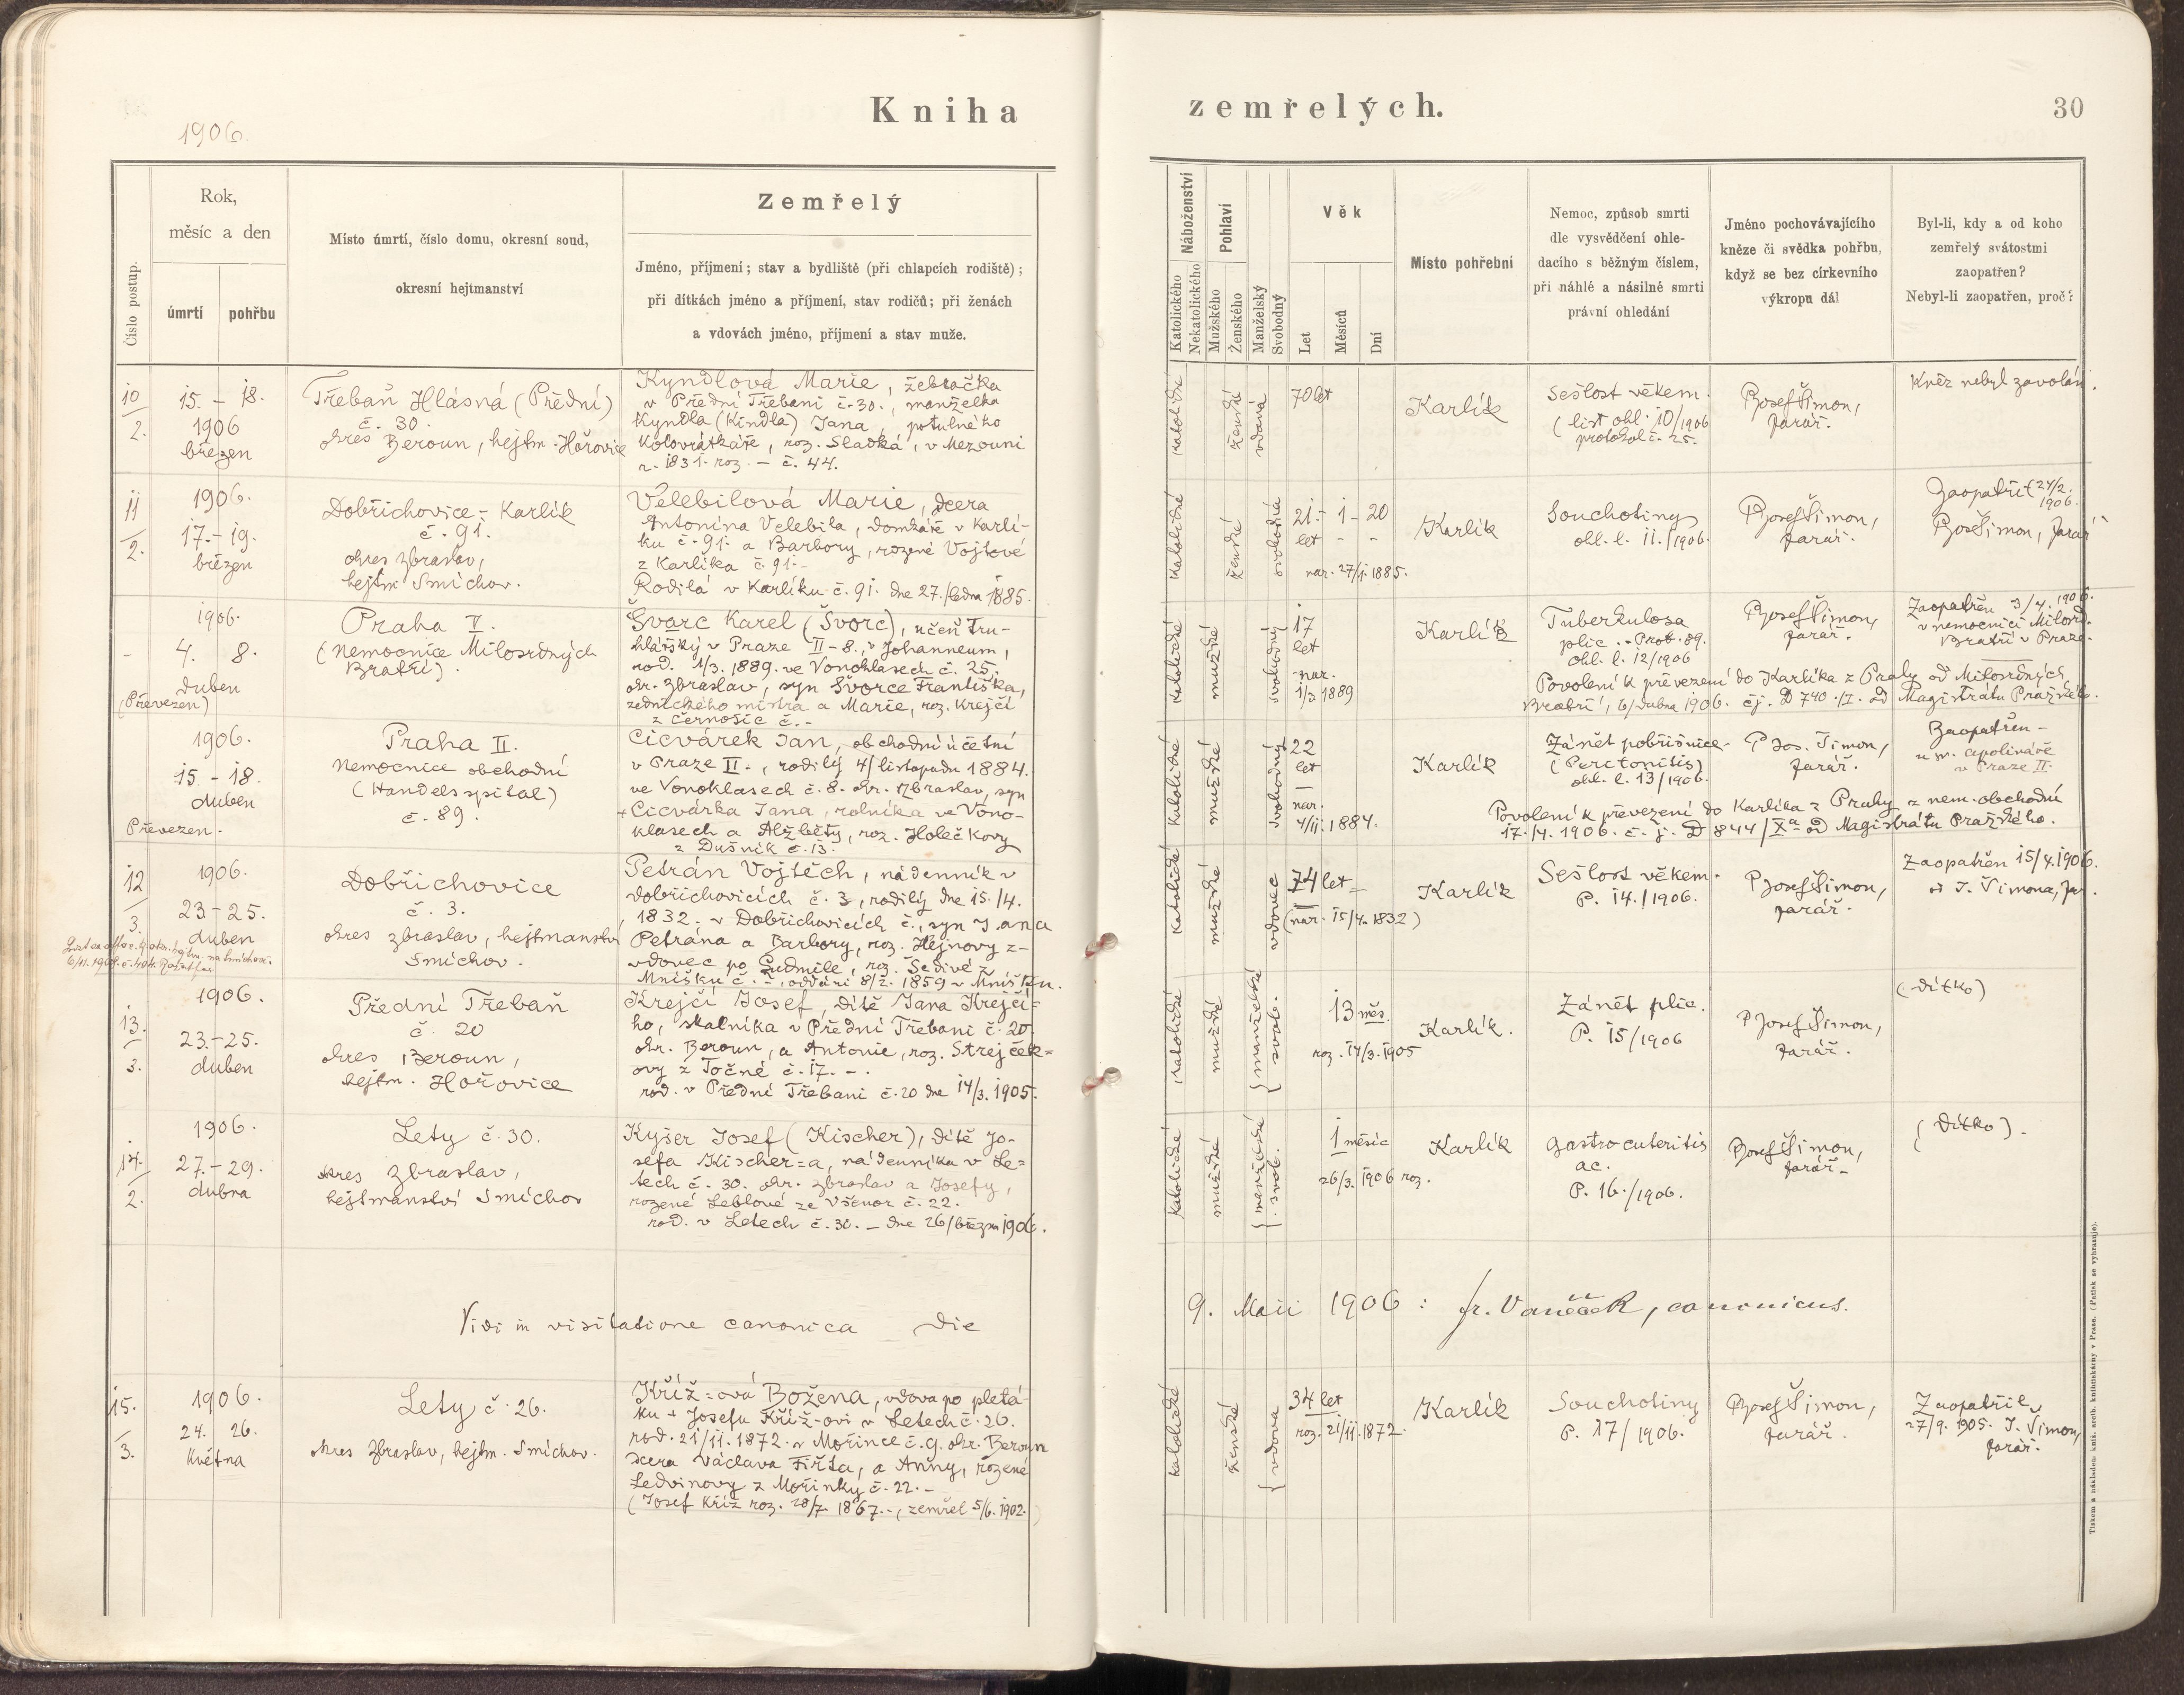 Kniha
zemřelých.
30
1906.
Číslo postup.
Rok,
měsíc a den
úmrtí
pohřbu
Místo úmrtí, číslo domu, okresní soud,
okresní hejtmanství
Zemřelý
Jméno, příjmení; stav a bydliště (při chlapcích rodiště);
při dítkách jméno a příjmení, stav rodičů; při ženách
a vdovách jméno, příjmení a stav muže.
Náboženství
Katolického
Nekatolického
Pohlaví
Mužského
Ženského
Manželský
Svobodný
Věk
Let
Měsíců
Dní
Místo pohřební
Nemoc, způsob smrti
dle vysvědčení ohle-
dacího s běžným číslem,
při náhlé a násilné smrti
právní ohledání
Jméno pochovávajícího
kněze či svědka pohřbu,
když se bez církevního
výkropu dál
Byl-li, kdy a od koho
zemřelý svátostmi
zaopatřen?
Nebyl-li zaopatřen, proč?
10
2.
15. – 18.
1906
březen
Třebaň Hlásná (Přední)
č. 30.
okres Beroun, hejtm. Hořovice
Kyndlová Marie, žebračka
v Přední Třebani č. 30., manželka
Kyndla (Kindla) Jana, potulného
kolovrátkáře, roz. Sladká, v Mezouni
n. 1831. roz. – č. 44.
katolické
ženské
vdaná
70 let
Karlík
Sešlost věkem.
(list ohl. 10/1906
protokol č. 25.
P Josef Šimon,
farář.
Kněz nebyl zavolán.
11
2.
1906.
17. – 19.
březen
Dobřichovice – Karlík
č. 91.
okres Zbraslav,
hejtm Smíchov.
Velebilová Marie, dcera
Antonína Velebila, domkáře v Karlí-
ku č. 91. a Barbory, rozené Vojtové
z Karlíka č. 91. –
Rodilá v Karlíku č. 91. dne 27./ledna 1885.
katolické
ženské
svobodná
21 – 1 – 20
let – –
nar. 27/1. 1885.
Karlík
Souchotiny
ohl. l. 11./1906.
P Josef Šimon,
farář.
Zaopatřil 24/2.
1906.
P Jos Šimon, farář
1906.
4. 8.
duben
(Převezen)
Praha II.
(Nemocnice Milosrdných
Bratří).
Švarc Karel (Švorc), učeň tru-
hlářský v Praze II–8., v Johanneum,
rod. 1/3. 1889. ve Vonoklasech č. 25,
okr. Zbraslav, syn Švorce Františka,
zednického mistra a Marie, roz. Krejčí
z Černošic č. –
katolické
mužské
svobodný
17
let
nar.
1/3 1889
Karlík
Tuberkulosa
plic. – Prot. 89.
ohl. l. 12/1906
P Josef Šimon,
farář.
Zaopatřen 3/4. 1906.
v nemocnici Milosrd.
Bratří v Praze.
Povolení k převezení do Karlíka z Prahy od Milosrdných
Bratří, 6/dubna 1906. čj. D 740./I. od Magistrátu Pražského.
1906.
15. – 18.
duben
Převezen.
Praha II.
Nemocnice obchodní
(Handelsspital)
č. 89.
Cicvárek Jan, obchodní účetní
v Praze II., rodilý 4/listopadu 1884.
ve Vonoklasech č. 8. okr. Zbraslav, syn
+ Cicvárka Jana, rolníka ve Vono-
klasech a Alžběty, roz. Holečkovy
z Dušník č. 13.
katolické
mužské
svobodný
22
let
nar.
4/11. 1884.
Karlík
Zánět pobřišnice.
(Peritonitis)
ohl. l. 13/1906.
P Jos. Šimon,
farář.
Zaopatřen –
u sv. Apolináře
v Praze II.
Povolení k převezení do Karlíka z Prahy z nem. obchodní
17./4. 1906. č. j. D 844/Xa od Magistrátu Pražského.
12
3.
1906.
23. – 25.
duben
Dobřichovice
č. 3.
okres Zbraslav, hejtmanství
Smíchov.
Petrán Vojtěch, nádenník v
Dobřichovicích č. 3, rodilý dne 15./4.
1832. v Dobřichovicích č., syn Jana
Petrána a Barbory, roz. Hejnovy z –
vdovec po Ludmile, roz. Šedivé z
Mníšku č. –, oddáni 8/2. 1859 v Mníšku.
katolické
mužské
vdovec
74 let
(nar. 15/4. 1832)
Karlík
Sešlost věkem.
P. 14./1906.
P Josef Šimon,
farář.
Zaopatřen 15/4. 1906.
od J. Šimona, far.
13.
3.
1906.
23. – 25.
duben
Přední Třebaň
č. 20
okres Beroun,
hejtm. Hořovice
Krejčí Josef, dítě Jana Krejčí-
ho, skalníka v Přední Třebani č. 20
okr. Beroun, a Antonie, roz. Strejček-
ovy z Točné č. 17. – .
rod. v Přední Třebani č. 20 dne 14/3. 1905.
katolické
mužské
manželské
svob.
13 měs.
roz. 14/3. 1905
Karlík.
Zánět plic.
P. 15/1906
P Josef Šimon,
farář.
(dítko)
14.
2.
1906.
27. – 29.
dubna
Lety č. 30.
okres Zbraslav,
hejtmanství Smíchov
Kyšer Josef (Kischer), dítě Jo-
sefa Kischer=a, nádenníka v Le=
tech č. 30. okr. Zbraslav a Josefy,
rozené Leblové ze Všenor č. 22.
rod. v Letech č. 30. – dne 26/března 1906.
katolické
mužské
manželské
svob.
1 měsíc
26/3. 1906 roz.
Karlík
Gastrocuteritis
ac.
P. 16./1906.
P Josef Šimon,
farář –
(Dítko).
Vidi in visitatione canonica die
9. Maii 1906: fr. Vaněček, canonicus.
15.
3.
1906.
24. 26.
května
Lety č. 26.
okres Zbraslav, hejtm. Smíchov.
Kříž=ová Božena, vdova po pletá-
ku + Josefu Kříž-ovi v Letech č. 26.
rod. 21/11. 1872. v Mořince č. 9. okr. Beroun
dcera Václava Fišta, a Anny, rozené
Ledvinovy z Mořinky č. 22. –
(Josef Kříž roz. 28/7. 1867. –, zemřel 5/6. 1902.)
katolické
ženské
vdova
34 let
roz. 21/11. 1872.
Karlík
Souchotiny
P. 17/1906.
P Josef Šimon,
farář.
Zaopatřil
27/9. 1905. J. Šimon,
farář.
Tiskem a nákladem kníž. arcib. knihtiskárny v Praze. (Patisk se vyhrazuje).